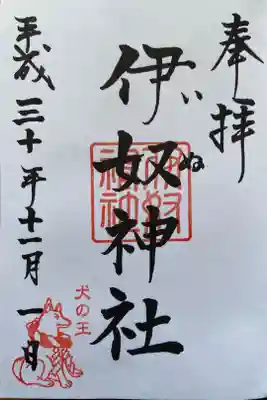 奉拝
伊奴神社
いぬ
伊奴
神社
平成三十年十一月一日
犬の王